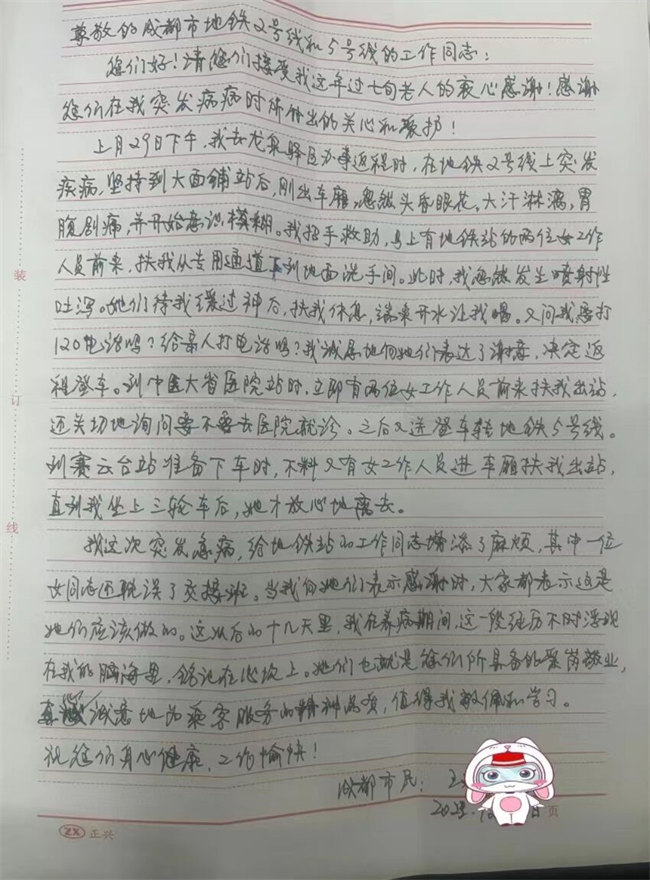 尊敬的成都市地铁2号线和5号线的工作同志：
您们好！请您们接受我这年过七旬老人的衷心感谢！感谢
您们在我突发疾病时所付出的关心和爱护！
上月29日下午，我去龙泉驿区办事返程时，在地铁2号线上突发
疾病，坚持到大面铺站后，刚出车厢，忽然头昏眼花，大汗淋漓，胃
腹剧痛，并开始意识模糊。我招手救助，马上有地铁站的两位女工作
人员前来，扶我从专用通道下到地面洗手间。此时，我忽然发生喷射性
吐泻。她们待我缓过神后，扶我休息，端来开水让我喝。又问我要打
120电话吗？给亲人打电话吗？我诚恳地向她们表达了谢意，决定返
程登车。到中医大省医院站时，立即有两位女工作人员前来扶我出站，
还关切地询问要不要去医院就诊。之后又送登车转地铁5号线。
到赛云台站准备下车时，不料又有女工作人员进车厢扶我出站，
直到我坐上三轮车后，她才放心地离去。
我这次突发急病，给地铁站的工作同志增添了麻烦，其中一位
女同志还耽误了交接班。当我向她们表示感谢时，大家都表示这是
她们应该做的。这以后的十几天里，我在养病期间，这一段经历不时浮现
在我的脑海里，铭记在心坎上。她们也就是您们所具备的爱岗敬业，
诚意地为乘客服务的精神品质，值得我敬佩和学习。
祝您们身心健康，工作愉快！
成都市民：
页
装
订
线
ZX 正兴